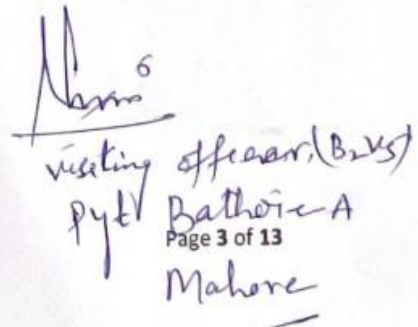 6
visiting officer, (B2V5)
Pyt Bathoie-A
Page 3 of 13
Mahore